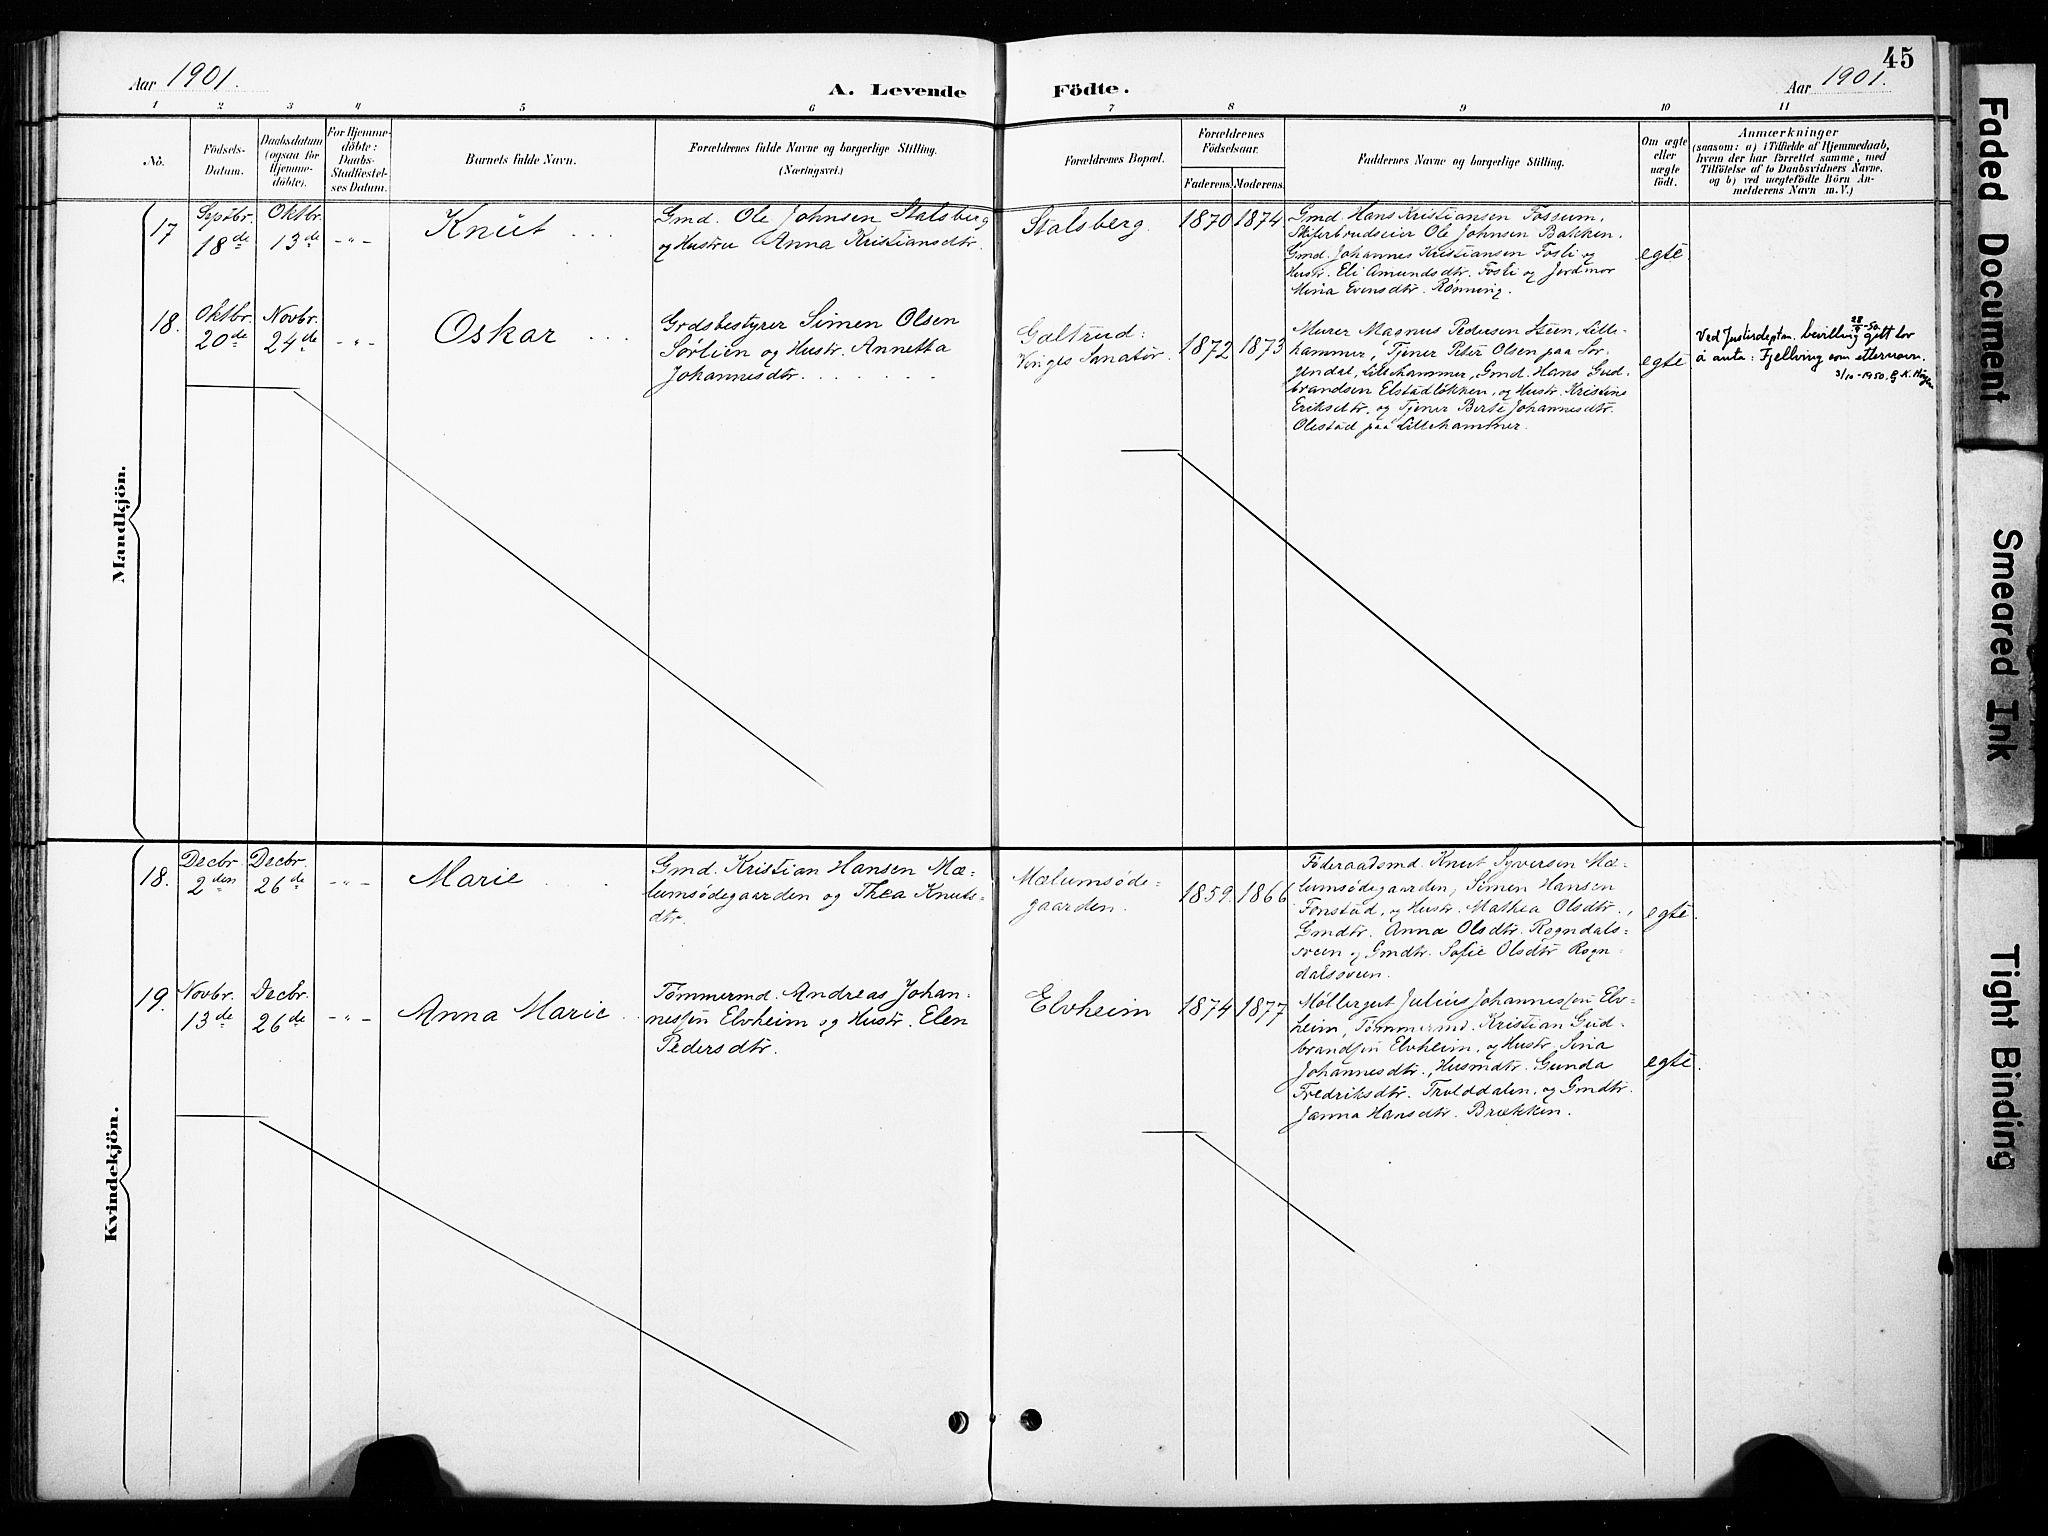 Aar 1901.
A. Levende Födte.
45
Aar 1901.
1 2 3 4 5 6 7 8 9 10 11
No.
Födsels-
Datum.
Daabsdatum
(ogsaa for
Hjemme-
döbte).
For Hjemme-
döbte:
Daabs-
Stadfæstel-
ses Datum.
Barnets fulde Navn.
Forældrenes fulde Navne og borgerlige Stilling.
(Næringsvei.)
Forældrenes Bopæl.
Forældrenes
Födselsaar.
Faderens. Moderens.
Faddernes Navne og borgerlige Stilling.
Om ægte
eller
uægte
födt.
Anmærkninger
(saasom: a) i Tilfælde af Hjemmedaab,
hvem der har forrettet samme, med
Tilföielse af to Daabsvidners Navne,
og b) ved uægtefödte Börn An-
melderens Navn m. V.)
Mandkjön.
17
Septbr.
18de
Oktbr.
13de
-"-
Knut
Gmd. Ole Johnsen Stalsberg
og Hustru Anna Kristiansdtr.
Stalsberg.
1870 1874.
Gmd. Hans Kristiansen Fossum,
Skiferbrudseier Ole Johnsen Bakken.
Gmd. Johannes Kristiansen Fosli og
Hustr. Eli Amundsdtr. Fosli og Jordmor
Mina Evensdtr. Rønning.
egte
18.
Oktbr.
20de
Novbr.
24de
-"-
Oskar
Grdsbestyrer Simen Olsen
Sørlien og Hustr. Annetta
Johannesdtr.
Galtrud:
Vinges Sanator.
1872 1873
Murer Magnus Pedersen Steen, Lille-
hammer, Tjener Peter Olsen paa Sor-
gendal, Lillehammer, Gmd. Hans Gud-
brandsen Elstadløkken, og Hustr. Kristine
Eriksdtr. og Tjener Berte Johannesdtr.
Olestad paa Lillehammer.
egte
28/9-50
Ved Justisdeptm. bevilling gitt lov
å anta: Fjellving som etternavn.
3/10-1950.
Kvindekjön.
18.
Decbr.
2den
Decbr.
26de
-"-
Marie
Gmd. Kristian Hansen Mæ-
lumsødegaarden og Thea Knuts-
dtr.
Mælumsøde-
gaarden.
1859. 1866
Föderaadsmd. Knut Syversen Mæ-
lumsødegaarden, Simen Hansen
Fonstad, og Hustr. Mathea Olsdtr.,
Gmdtr. Anna Olsdtr. Rogndals-
sveen og Gmdtr. Sofie Olsdtr Rogn-
dalssveen.
egte.
19.
Novbr.
13de
Decbr.
26de
-"-
Anna Marie
Tømmermd. Andreas Johan-
nessen Elvheim og Hustr. Elen
Pedersdtr.
Elvheim
1874 1877
Møllergut Julius Johannessen Elv-
heim, Tømmermd. Kristian Gud-
brandsen Elvheim, og Hustr. Sina
Johannesdtr., Husmdtr. Gunda
Fredriksdtr. Trolddalen, og Gmdtr.
Janna Hansdtr. Brækken.
egte.
Faded Document
Smeared Ink
Tight Binding